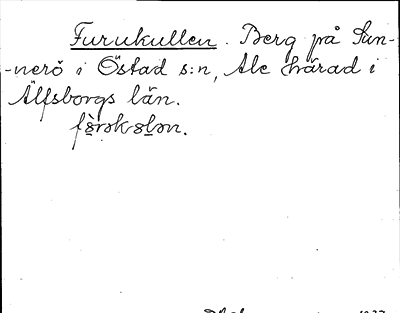 Furukullen. Berg på Sun-
-nerö i Östad s:n, Ale härad i
Älfsborgs län.